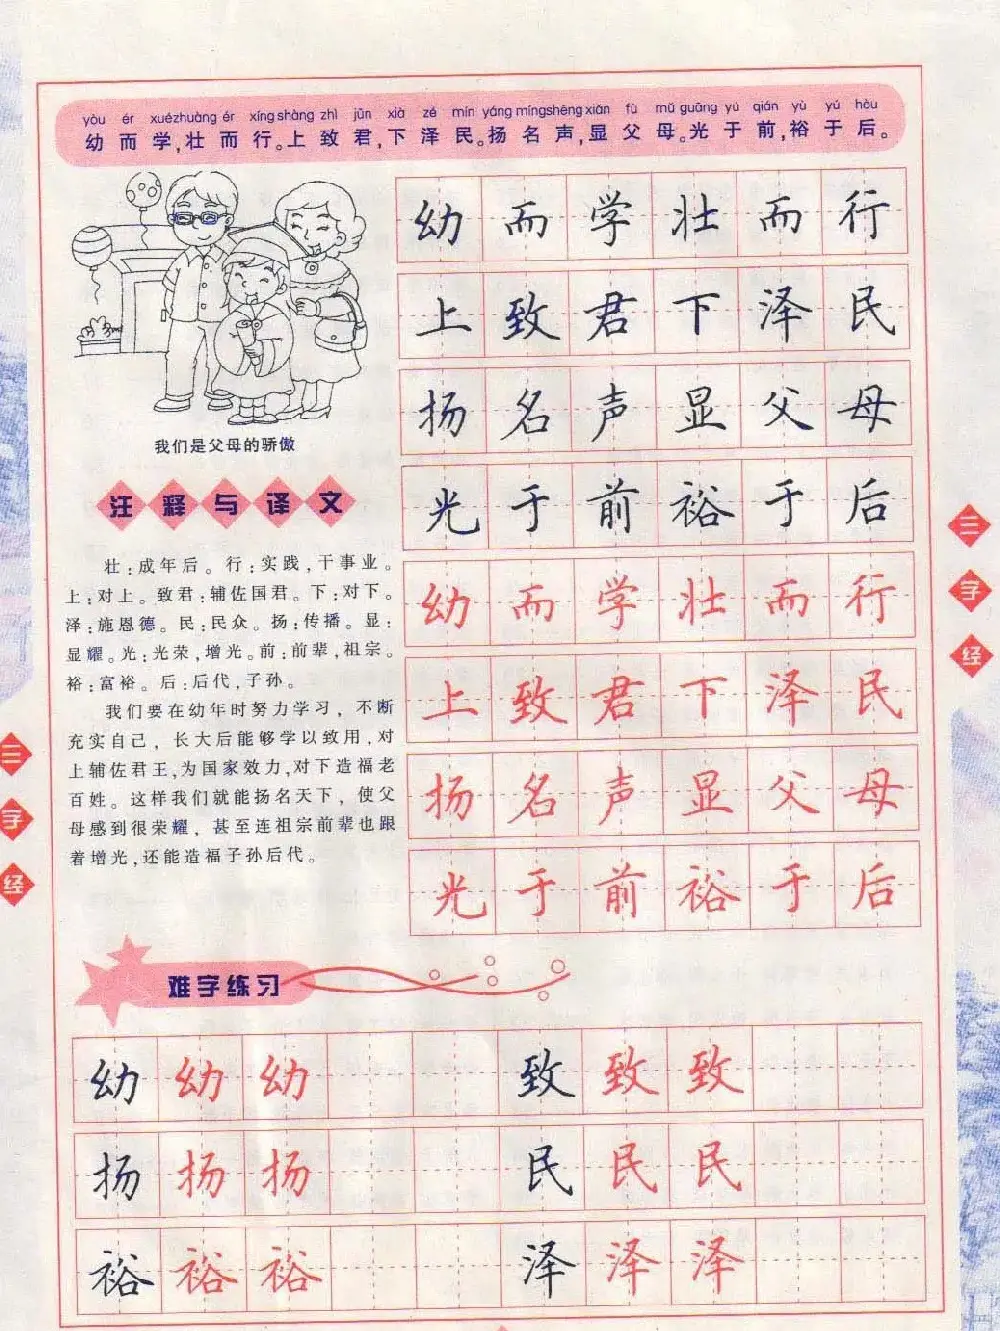 yòu ér xuézhuàng ér xíng shàng zhì jūn xià zé mín yáng míngshēng xiǎn fù mǔ guāng yú qián yù yú hòu
幼而学,壮而行。上致君,下泽民。扬名声,显父母。光于前,裕于后。
我们是父母的骄傲
注释与译文
壮:成年后。行:实践,干事业。
上:对上。致君:辅佐国君。下:对下。
泽:施恩德。民:民众。扬:传播。显:
显耀。光:光荣,增光。前:前辈,祖宗。
裕:富裕。后:后代,子孙。
我们要在幼年时努力学习,不断
充实自己,长大后能够学以致用,对
上辅佐君王,为国家效力,对下造福老
百姓。这样我们就能扬名天下,使父
母感到很荣耀,甚至连祖宗前辈也跟
着增光,还能造福子孙后代。
幼而学壮而行
上致君下泽民
扬名声显父母
光于前裕于后
幼而学壮而行
上致君下泽民
扬名声显父母
光于前裕于后
三字经
三字经
难字练习
幼幼幼 致致致
扬扬扬 民民民
裕裕裕 泽泽泽